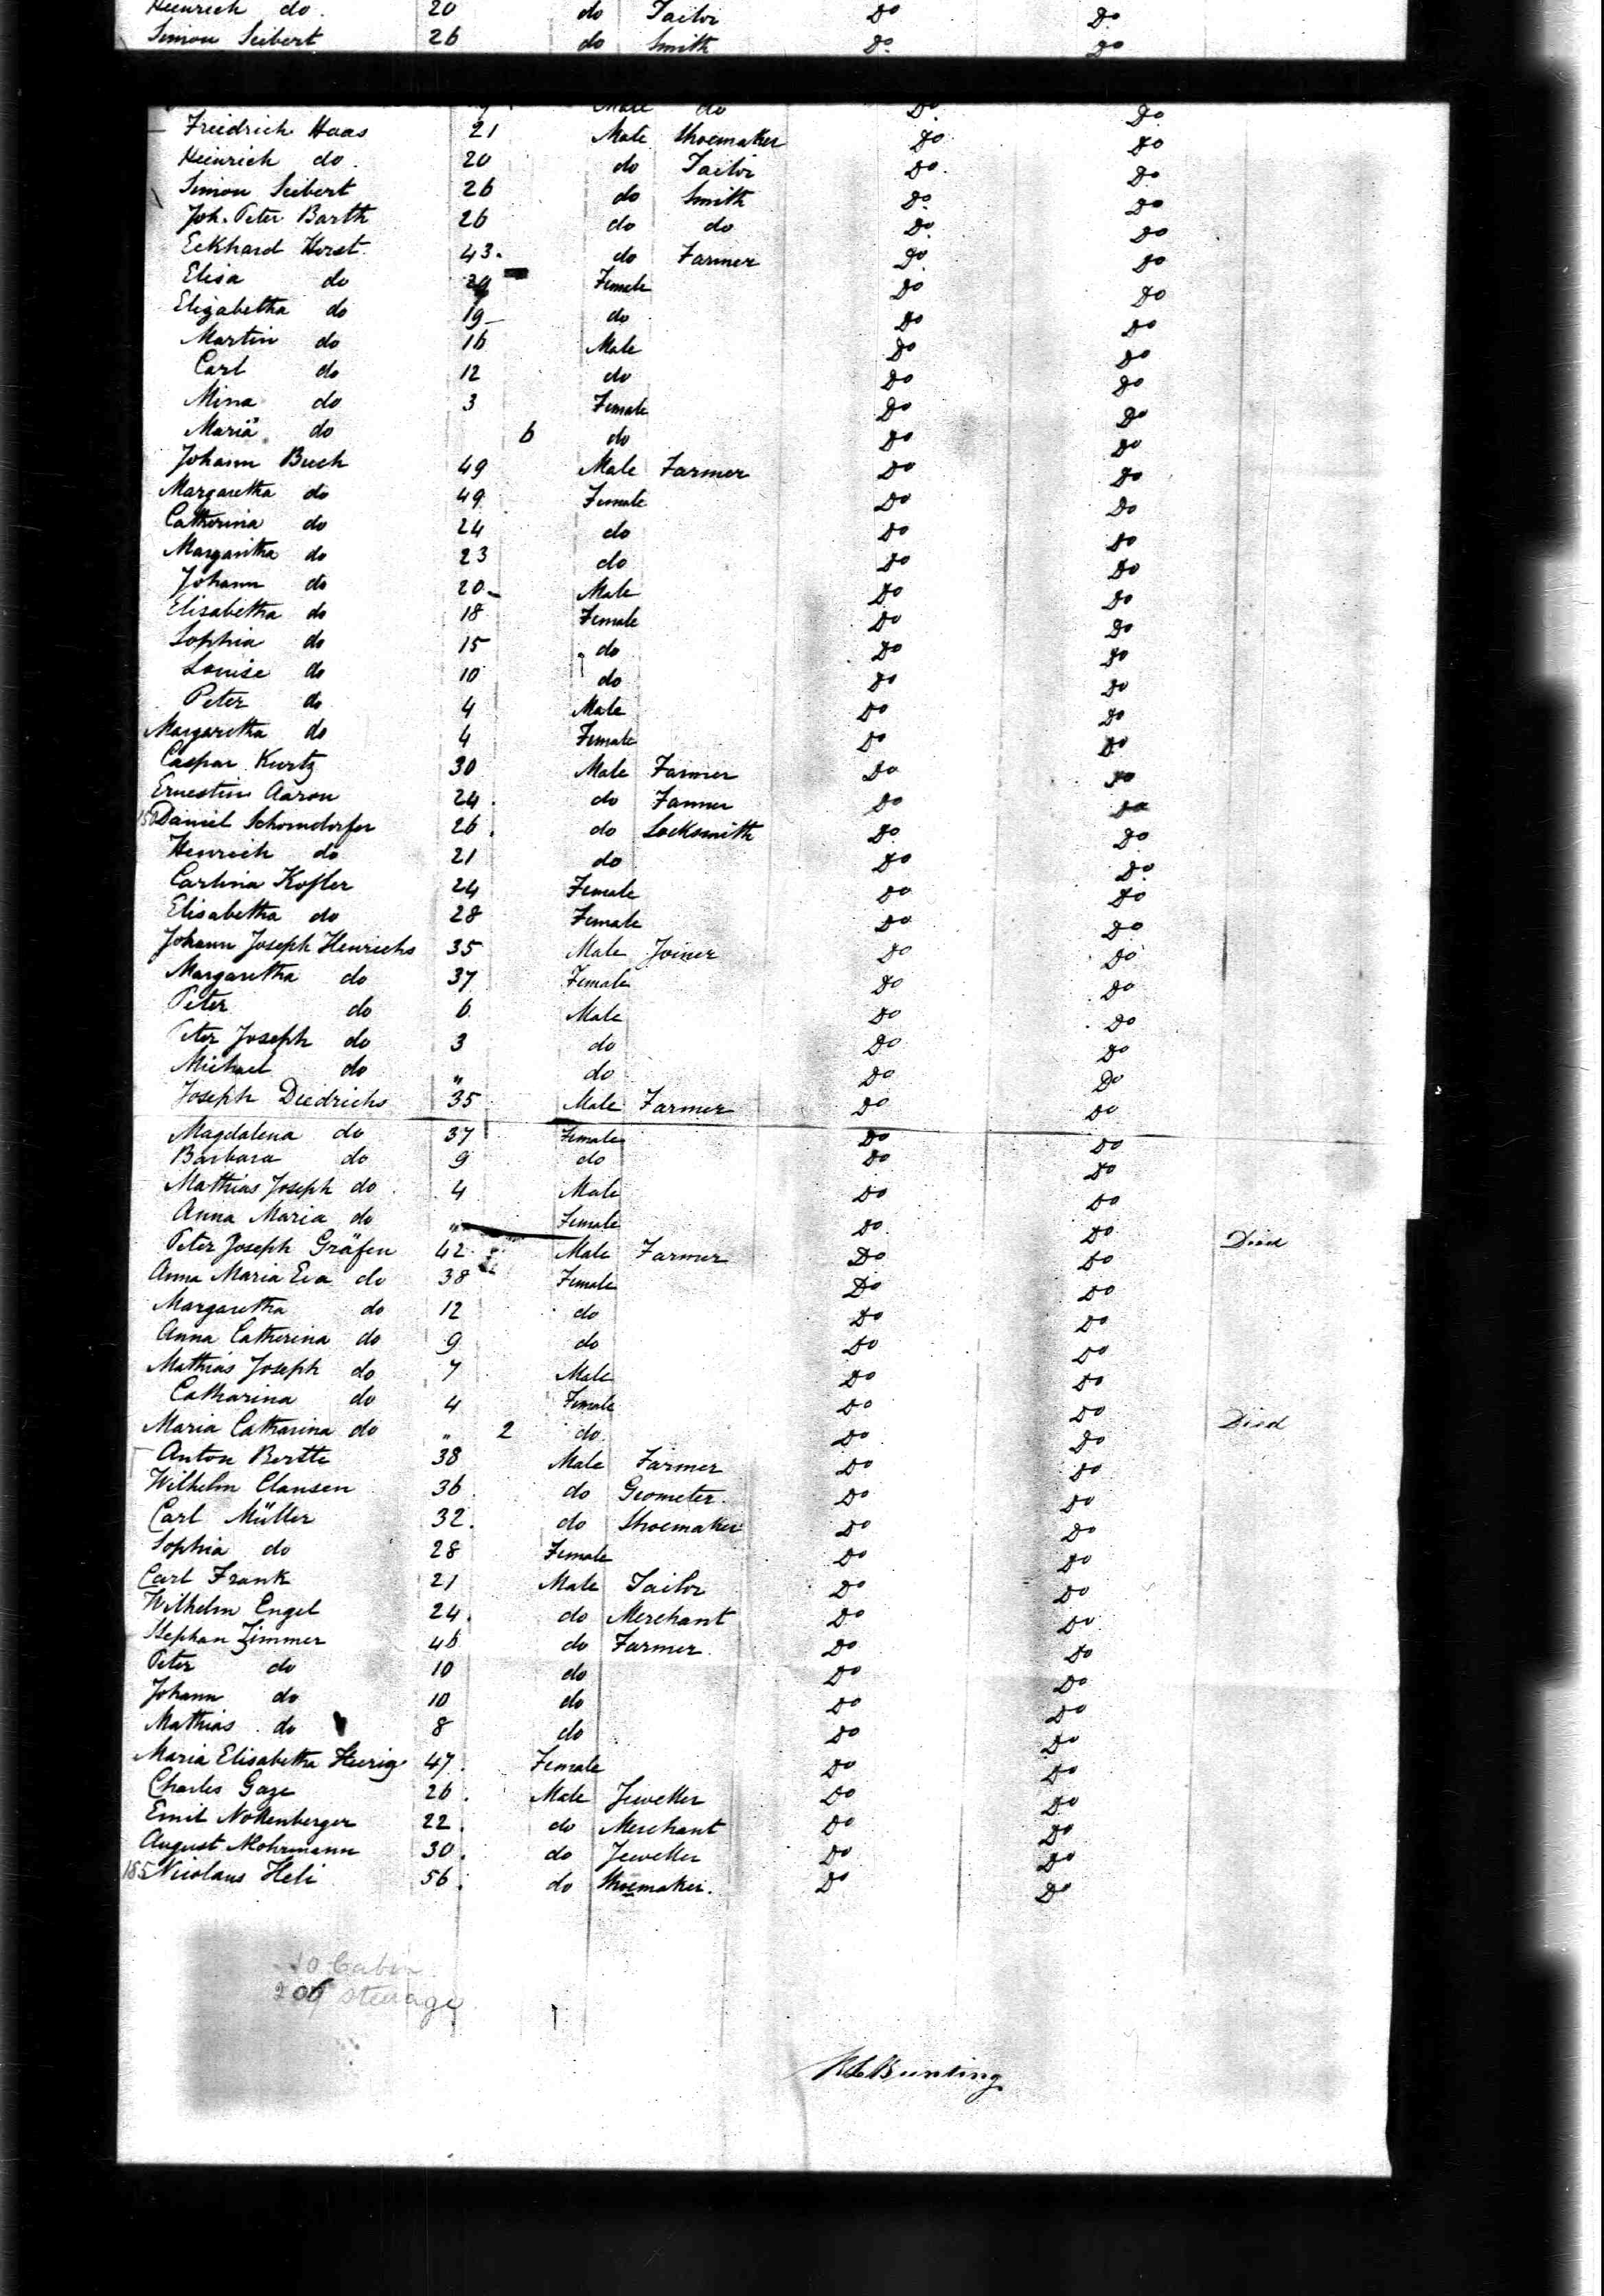 Heinrich do. 20 do Tailor Do Do
Simon Seibert 26 do Smith Do. Do
Male do Do. Do.
Friedrich Haas 21 Male Shoemaker Do Do
Heinrich do. 20 do Tailor Do. Do.
Simon Seibert 26 do Smith Do. Do
Joh. Peter Barth 26 do do Do. Do
Eckhard Horst. 43. do Farmer Do. Do
Elisa do Female Do Do
Elizabetha do 19 do Do Do
Martin do 16 Male Do Do
Carl do 12 do Do Do
Mina do 3 Female Do Do
Maria do 6 do Do Do
Johann Buch 49 Male Farmer Do Do
Margaretha do 49 Female Do Do
Catherina do 24 do Do Do
Margaritha do 23 do Do Do
Johann do 20 Male Do Do
Elisabetha do 18 Female Do Do
Sophia do 15 do Do Do
Louise do 10 do Do Do
Peter do 4 Male Do Do
Margaretha do 4 Female Do Do
Caspar Kurtz 30 Male Farmer Do Do
Ernestin Aaron 24. do Do Do
Daniel Schorndorfer 26. do Locksmith Do. Do
Henrich do 21 do Do Do.
Carlina Kofler 24 Female Do Do
Elisabetha do 28 Female Do Do
Johann Joseph Henrichs 35 Male Joiner Do Do
Margaretha do 37 Female Do Do
Peter do 6 Male Do Do
Peter Joseph do 3 do Do Do
Michael do " do Do Do
Joseph Diedrichs 35 Male Farmer Do Do
Magdalena do 37 Female Do Do
Barbara do 9 do Do Do
Mathias Joseph do 4 Male Do Do
Anna Maria do " Female Do Do Died
Peter Joseph Gräfen 42 Male Farmer Do Do
Anna Maria Eva do 38 Female Do Do
Margaretha do 12 do Do Do
Anna Catherina do 9 do Do Do
Mathias Joseph do 7 Male Do Do
Catharina do 4 Female Do Do
Maria Catharina do " 2 do Do Do Died
Anton Bertte 38 Male Farmer Do Do
Wilhelm Clausen 36 do Geometer. Do Do
Carl Müller 32. do Shoemaker Do Do
Sophia do 28 Female Do Do
Carl Frank 21 Male Tailor Do Do
Wilhelm Engel 24. do Merchant Do Do
Stephan Zimmer 46 do Farmer. Do Do
Peter do 10 do Do Do
Johann do 10 do Do Do
Mathias do 8 do Do Do
Maria Elisabetha 47. Female Do Do
Charles Gaze 26. Male Jeweller Do Do
Emil Nottenberger 22. do Merchant Do Do
August Mohrmann 30. do Jeweller Do Do
185 Nicolaus Heli 56. do Shoemaker. Do Do
Cabin
Steerage
Bunting